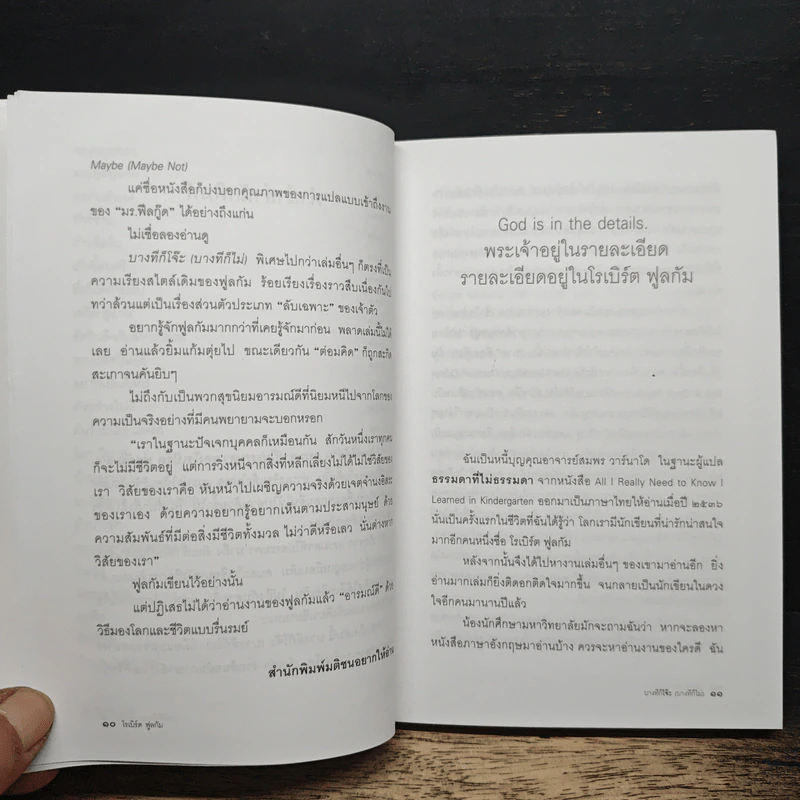 Maybe (Maybe Not)
แค่ชื่อหนังสือก็บ่งบอกคุณภาพของการแปลแบบเข้าถึงงาน
ของ “มร.ฟีลกู๊ด” ได้อย่างถึงแก่น
ไม่เชื่อลองอ่านดู
บางทีก็โจ๊ะ (บางทีก็ไม่) พิเศษไปกว่าเล่มอื่นๆ ก็ตรงที่เป็น
ความเรียงสไตล์เดิมของฟูลกัม ร้อยเรียงเรื่องราวสืบเนื่องกันไป
ทว่าล้วนแต่เป็นเรื่องส่วนตัวประเภท “ลับเฉพาะ” ของเจ้าตัว
อยากรู้จักฟูลกัมมากกว่าที่เคยรู้จักมาก่อน พลาดเล่มนี้ไม่ได้
เลย อ่านแล้วยิ้มแก้มตุ่ยไป ขณะเดียวกัน “ต่อมคิด” ก็ถูกสะกิด
สะเกาจนคันยิบๆ
ไม่ถึงกับเป็นพวกสุขนิยมอารมณ์ดีที่นิยมหนีไปจากโลกของ
ความเป็นจริงอย่างที่มีคนพยายามจะบอกหรอก
“เราในฐานะปัจเจกบุคคลก็เหมือนกัน สักวันหนึ่งเราทุกคน
ก็จะไม่มีชีวิตอยู่ แต่การวิ่งหนีจากสิ่งที่หลีกเลี่ยงไม่ได้ไม่ใช่วิสัยของ
เรา วิสัยของเราคือ หันหน้าไปเผชิญความจริงด้วยเจตจำนงอิสระ
ของเราเอง ด้วยความอยากรู้อยากเห็นตามประสามนุษย์ ด้วย
ความสัมพันธ์ที่มีต่อสิ่งมีชีวิตทั้งมวล ไม่ว่าดีหรือเลว นั่นต่างหาก
วิสัยของเรา”
ฟูลกัมเขียนไว้อย่างนั้น
แต่ปฏิเสธไม่ได้ว่าอ่านงานของฟูลกัมแล้ว “อารมณ์ดี” ด้วย
วิธีมองโลกและชีวิตแบบรื่นรมย์
สำนักพิมพ์มติชนอยากให้อ่าน
๑๐ โรเบิร์ต ฟูลกัม
God is in the details.
พระเจ้าอยู่ในรายละเอียด
รายละเอียดอยู่ในโรเบิร์ต ฟูลกัม
ฉันเป็นหนี้บุญคุณอาจารย์สมพร วาร์นาโด ในฐานะผู้แปล
ธรรมดาที่ไม่ธรรมดา จากหนังสือ All I Really Need to Know I
Learned in Kindergarten ออกมาเป็นภาษาไทยให้อ่านเมื่อปี ๒๕๓๖
นั่นเป็นครั้งแรกในชีวิตที่ฉันได้รู้ว่า โลกเรามีนักเขียนที่น่ารักน่าสนใจ
มากอีกคนหนึ่งชื่อ โรเบิร์ต ฟูลกัม
หลังจากนั้นจึงได้ไปหางานเล่มอื่นๆ ของเขามาอ่านอีก ยิ่ง
อ่านมากเล่มก็ยิ่งติดอกติดใจมากขึ้น จนกลายเป็นนักเขียนในดวง
ใจอีกคนมานานปีแล้ว
น้องนักศึกษามหาวิทยาลัยมักจะถามฉันว่า หากจะลองหา
หนังสือภาษาอังกฤษมาอ่านบ้าง ควรจะหาอ่านงานของใครดี ฉัน
บางทีก็โจ๊ะ (บางทีก็ไม่) ๑๑